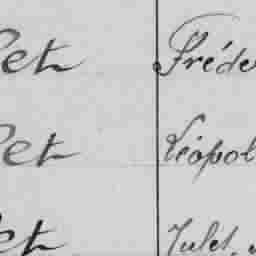 et Fréde
et Léopol
et Jules,